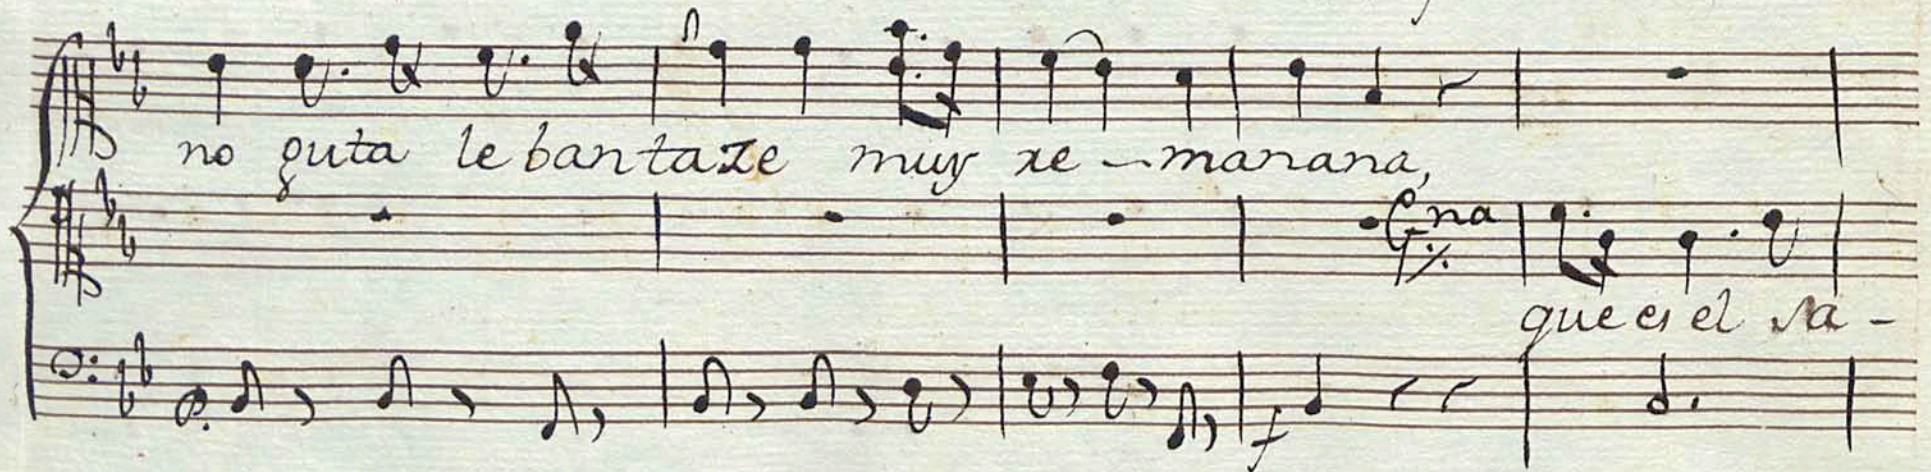 no guta le bantaze muy re - manana,
Gna
que es el sa -
f